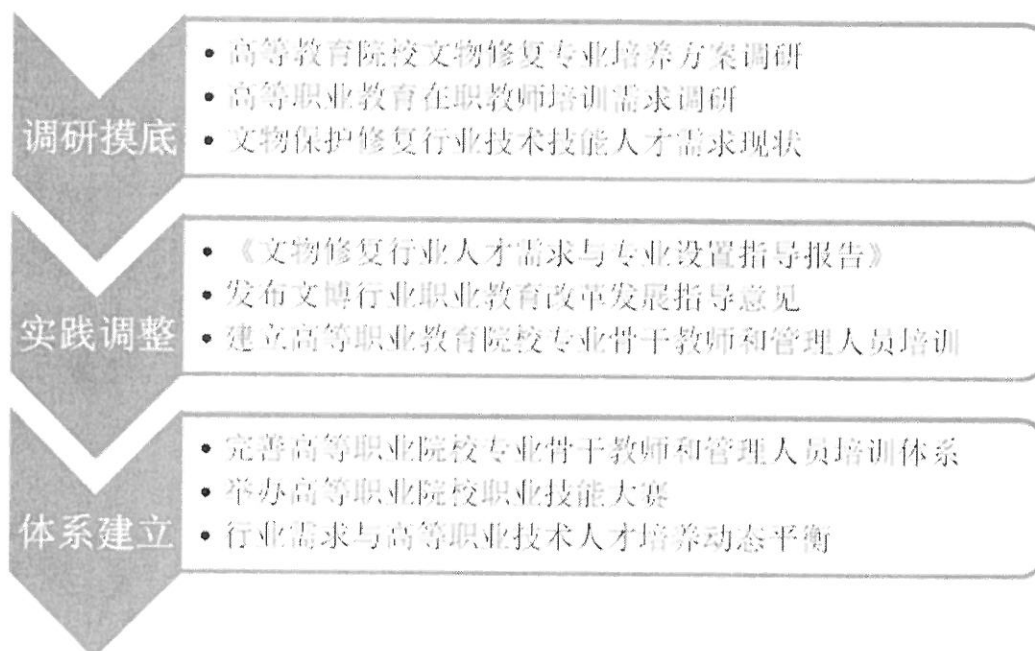 调研摸底
• 高等教育院校文物修复专业培养方案调研
• 高等职业教育在职教师培训需求调研
• 文物保护修复行业技术技能人才需求现状
实践调整
• 《文物修复行业人才需求与专业设置指导报告》
• 发布文博行业职业教育改革发展指导意见
• 建立高等职业教育院校专业骨干教师和管理人员培训
体系建立
• 完善高等职业院校专业骨干教师和管理人员培训体系
• 举办高等职业院校职业技能大赛
• 行业需求与高等职业技术人才培养动态平衡